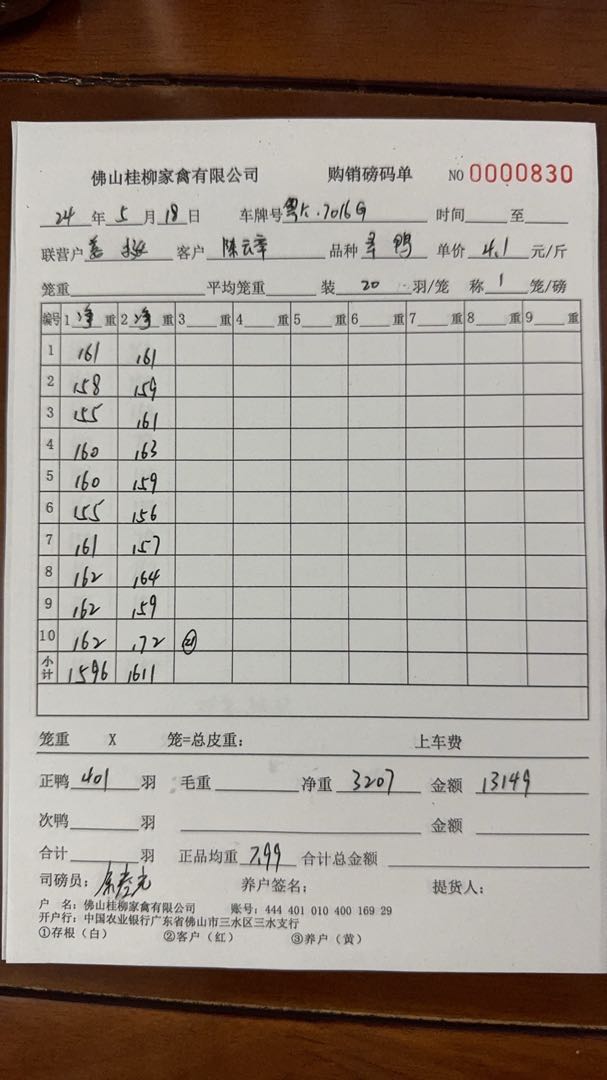 佛山桂柳家禽有限公司 购销磅码单 NO 0000830
24 年 5 月 18 日 车牌号 粤K.7016G 时间 至
联营户 客户 陈云章 品种 鸭 单价 4.1 元/斤
笼重 平均笼重 装 20 羽/笼 称 1 笼/磅
编号 1 净 重 2 净 重 3 重 4 重 5 重 6 重 7 重 8 重 9 重
1 161 161
2 158 159
3 155 161
4 160 163
5 160 159
6 155 156
7 161 157
8 162 164
9 162 159
10 162 172 21
小计 1596 1611
笼重 X 笼=总皮重: 上车费
正鸭 401 羽 毛重 净重 3207 金额 13149
次鸭 羽 金额
合计 羽 正品均重 7.99 合计总金额
司磅员: 养户签名: 提货人:
户 名: 佛山桂柳家禽有限公司 账号: 444 401 010 400 169 29
开户行: 中国农业银行广东省佛山市三水区三水支行
①存根(白) ②客户(红) ③养户(黄)